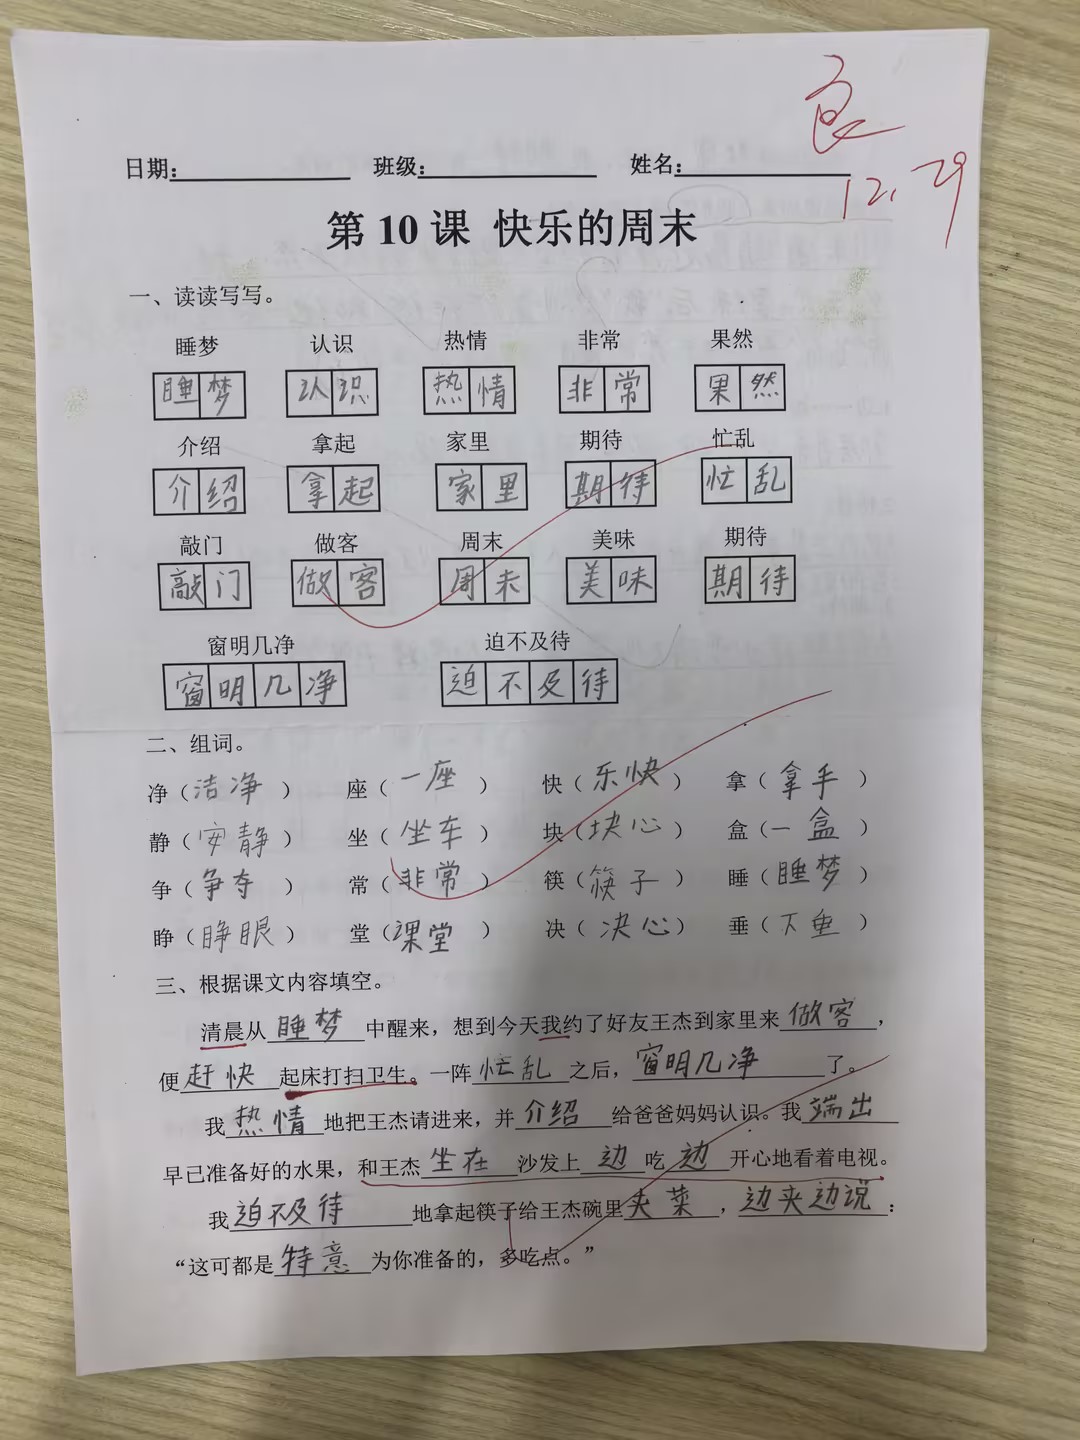 良
12.29
日期: 班级: 姓名:
第 10 课 快乐的周末
一、读读写写。
睡梦 认识 热情 非常 果然
睡梦 认识 热情 非常 果然
介绍 拿起 家里 期待 忙乱
介绍 拿起 家里 期待 忙乱
敲门 做客 周末 美味 期待
敲门 做客 周末 美味 期待
窗明几净 迫不及待
窗明几净 迫不及待
二、组词。
净（洁净） 座（一座） 快（乐快） 拿（拿手）
静（安静） 坐（坐车） 块（块心） 盒（一盒）
争（争夺） 常（非常） 筷（筷子） 睡（睡梦）
睁（睁眼） 堂（课堂） 决（决心） 垂（下垂）
三、根据课文内容填空。
清晨从睡梦中醒来，想到今天我约了好友王杰到家里来做客，
便赶快起床打扫卫生。一阵忙乱之后，窗明几净了。
我热情地把王杰请进来，并介绍给爸爸妈妈认识。我端出
早已准备好的水果，和王杰坐在沙发上边吃边开心地看着电视。
我迫不及待地拿起筷子给王杰碗里夹菜，边夹边说：
“这可都是特意为你准备的，多吃点。”